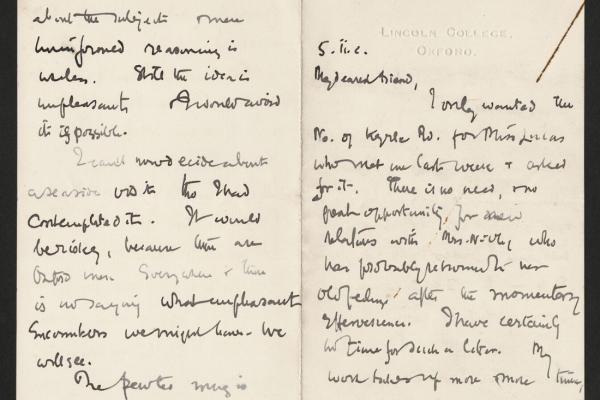 about the subject & mere
uninformed reasoning is
useless. Still the idea is
unpleasant & I would avoid
it if possible.
I can't now decide about
a seaside visit tho I had
contemplated it. It would
be risky, because there are
Oxford men everywhere & there
is no saying what unpleasant
encounters we might have. We
will see.
The pewter mug is
LINCOLN COLLEGE,
OXFORD.
My dearest friend,
I only wanted the
No. of Kyrle Rd. for Miss Lucas
who met me last week & asked
for it. There is no need, & no
great opportunity, for
relations with Mrs. who
has probably returned to her
old feelings after the momentary
effervescence. I have certainly
no time for such a labor. My
work takes up more & more time,